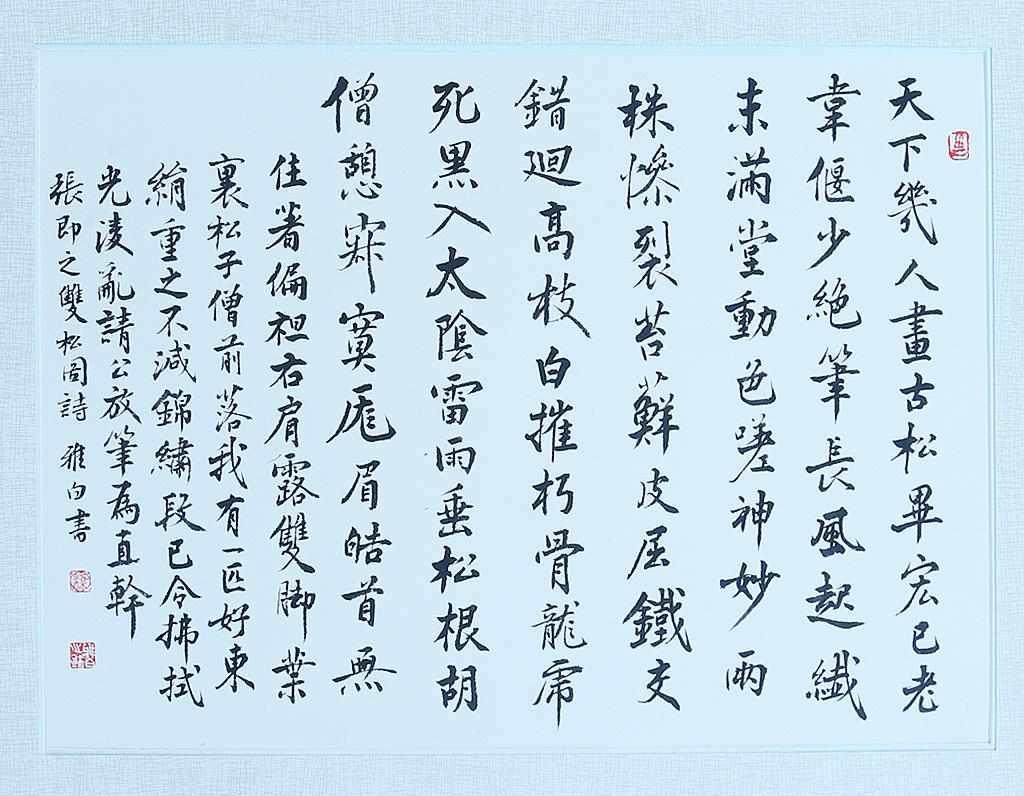 天下幾人畫古松畢宏已老
韋偃少絕筆長風起纖
末滿堂動色嗟神妙兩
株慘裂苔蘚皮屈鐵交
錯迴高枝白摧朽骨龍虎
死黑入太陰雷雨垂松根胡
僧憩寂寞厖眉皓首無
住著偏袒右肩露雙脚葉
裏松子僧前落我有一匹好東
絹重之不減錦繡段已令拂拭
光凌亂請公放筆為直幹
張即之雙松图詩 雅白書